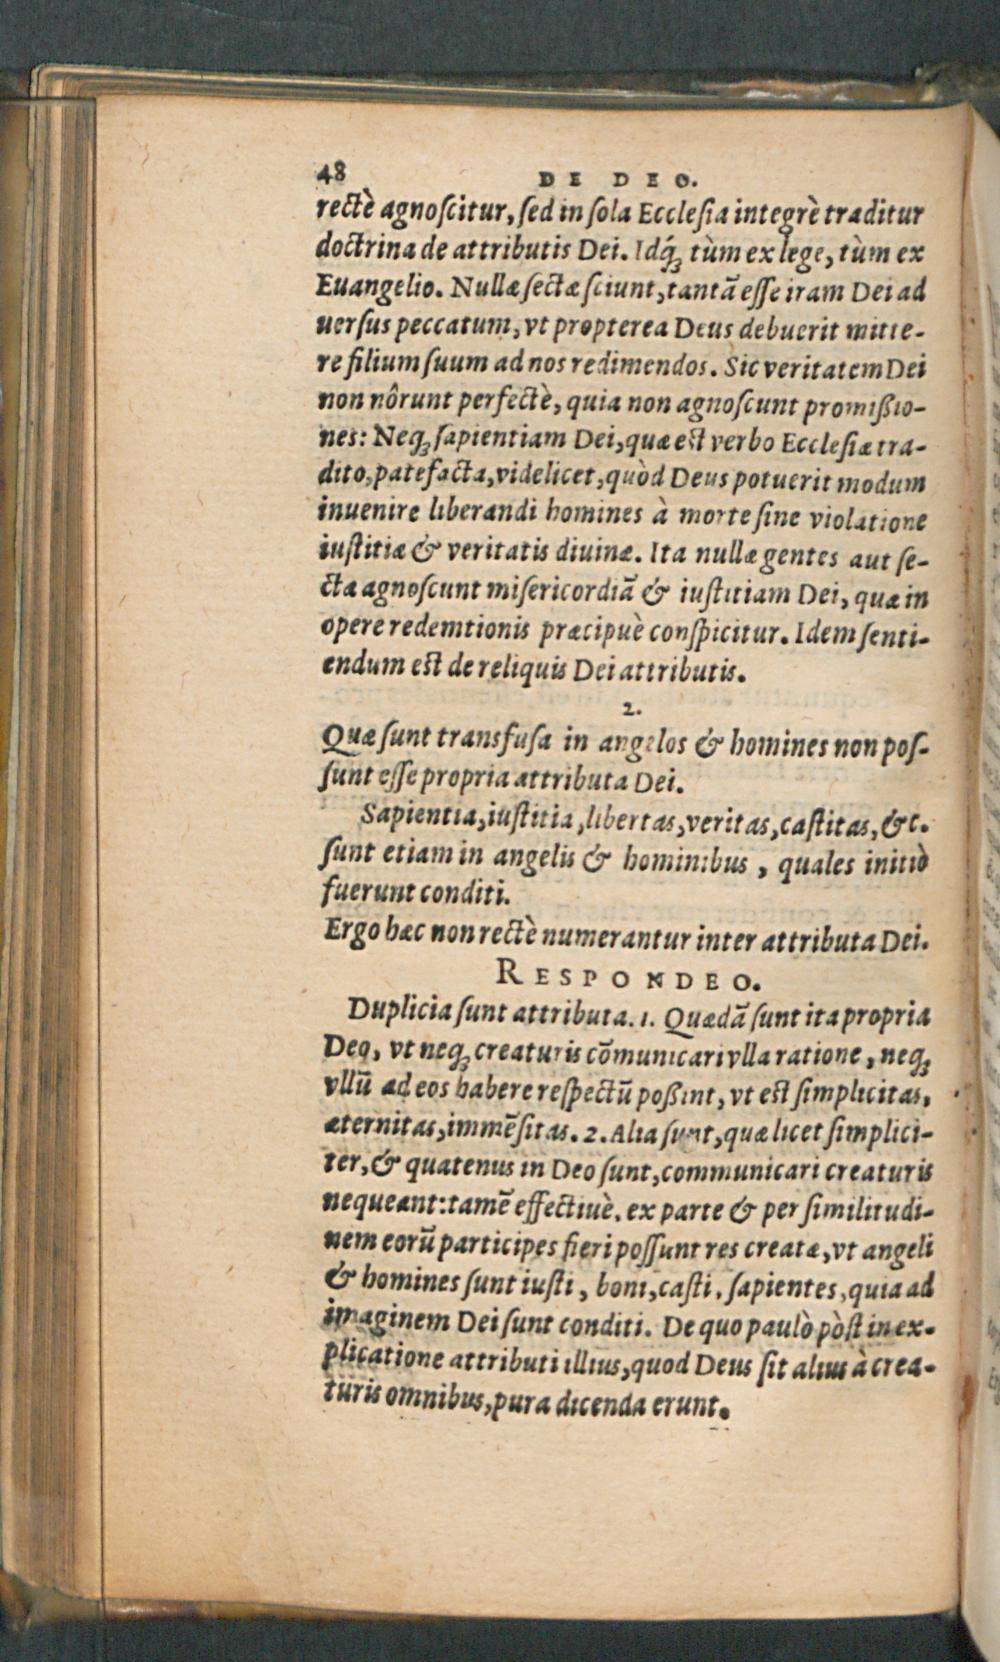 48 DE DEO.
rectè agnoſcitur, ſed in ſola Eccleſia integrè traditur
doctrina de attributis Dei. Idq́ꝫ tùm ex lege, tùm ex
Euangelio. Nullæ ſectæ ſciunt, tantā eſſe iram Dei ad
uerſus peccatum, vt propterea Deus debuerit mitte-
re filium ſuum ad nos redimendos. Sic veritatem Dei
non nôrunt perfectè, quia non agnoſcunt promißio-
nes: Neqꝫ ſapientiam Dei, quæ est verbo Eccleſiæ tra-
dito, patefacta, videlicet, quòd Deus potuerit modum
inuenire liberandi homines à morte ſine violatione
iuſtitiæ & veritatis diuinæ. Ita nullæ gentes aut ſe-
cta agnoſcunt miſericordiā & iuſtitiam Dei, quæ in
opere redemtionis præcipuè conſpicitur. Idem ſenti-
endum est de reliquis Dei attributis.
2.
Quæ ſunt transfuſa in angelos & homines non poſ-
ſunt eſſe propria attributa Dei.
Sapientia, iuſtitia, libertas, veritas, caſtitas, &c.
ſunt etiam in angelis & hominibus, quales initiò
fuerunt conditi.
Ergo hæc non rectè numerantur inter attributa Dei.
RESPONDEO.
Duplicia ſunt attributa. 1. Quædā ſunt ita propria
Deo, vt neqꝫ creaturis cōmunicari vlla ratione, neqꝫ
vllū ad eos habere reſpectū poßint, vt est ſimplicitas,
æternitas, immēſitas. 2. Alia ſunt, quæ licet ſimplici-
ter, & quatenus in Deo ſunt, communicari creaturis
nequeant: tamē effectiuè, ex parte & per ſimilitudi-
nem eorū participes fieri poſſunt res creatæ, vt angeli
& homines ſunt iuſti, boni, caſti, ſapientes, quia ad
imaginem Dei ſunt conditi. De quo paulò pòſt in ex-
plicatione attributi illius, quod Deus ſit alius à crea-
turis omnibus, pura dicenda erunt.